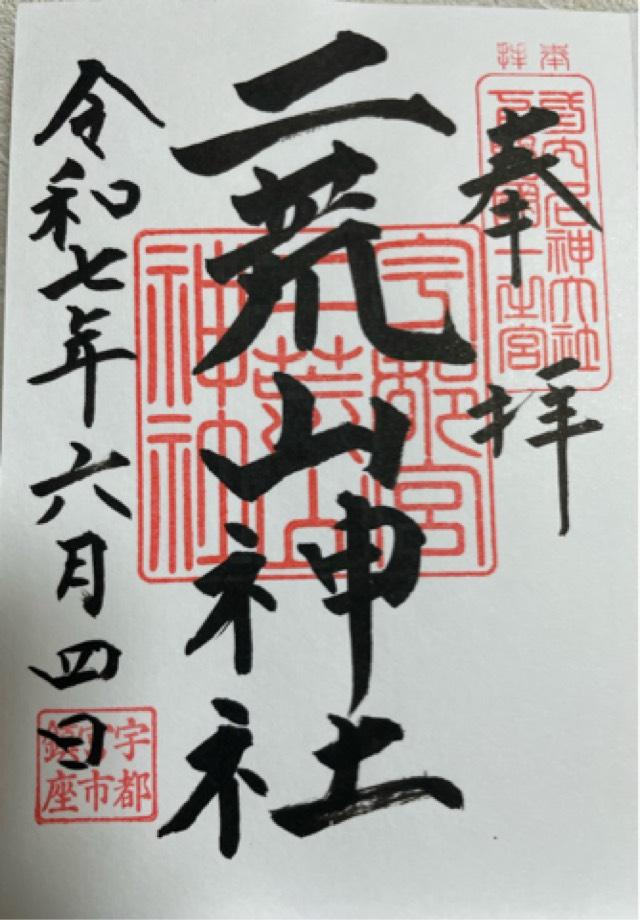 奉拝
二荒山神社
令和七年六月四日
奉拝
宇都宮
二荒山
神社
宇都
宮市
鎮座